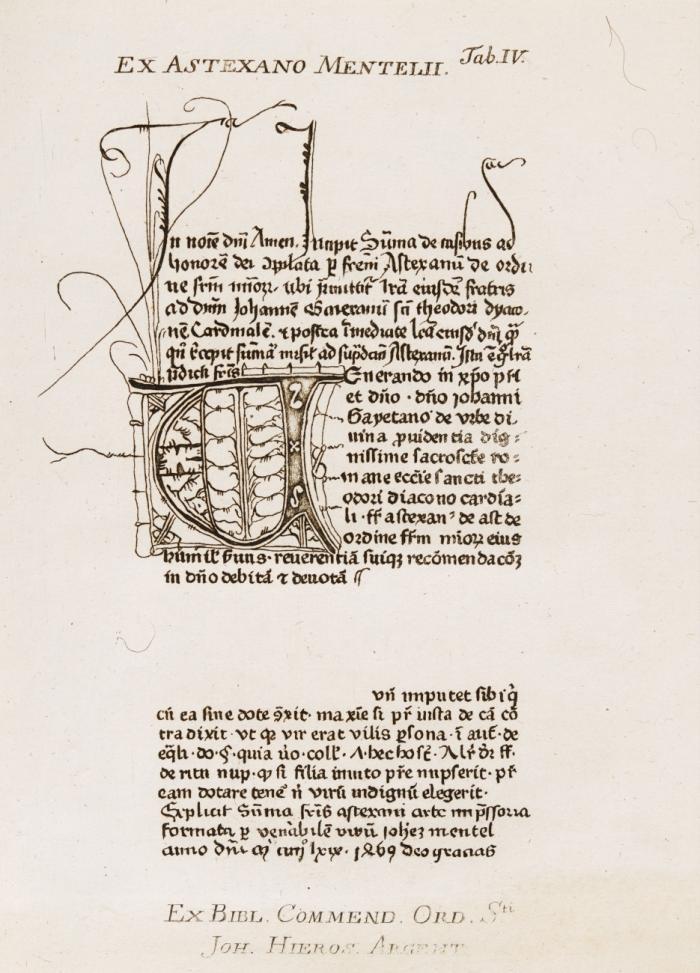 EX ASTEXANO MENTELII. Tab. IV.
In noie dnī Amen. Incipit Sūma de casibus ad
honorē dei ꝯpilata ꝑ frem Astexanū de ordi
ne frm mīorꝝ. ubi lrā eiusdē fratris
ad dnm Johannē Gaietanū sci theodori dyaco-
nē Cardinalē. ⁊ postea īmediate lrā eiusdē dnī
ad Astexanū.
Enerando in xp̄o pr̄i
et dn̄o · dn̄o iohanni
Gayetano de vrbe di
uina ꝓuidentia dig⸗
nissime sacrosc̄te ro⸗
mane eccl̄ie sancti the⸗
odori diacono cardīa⸗
li · fr̄ astexan⁹ de ast de
ordine fr̄m mīorꝝ eius
humil̓ reuerentiā suiqꝫ recōmendacōꝫ
in dn̄o debitā ⁊ deuotā
vn̄ imputet sibi q̄
cū ea sine dote ꝯ̄xit · maxīe si pr̄ iusta de cā cō
tradixit · vt qꝛ vir erat vilis ꝑsona · ī aut̄ · de
quia
de ritu nup · ꝙ si filia inuito pr̄e nupserit · pr̄
eam dotare tenet̄ n̄ virū indignū elegerit ·
Explicit Sūma fris astexani arte imp̄ssoria
formata ꝑ venābilē virū johēꝫ mentel
anno dnī lxix · 1469 deo gracias
EX BIBL. COMMEND. ORD. Sti
JOH. HIEROS. ARGENT.